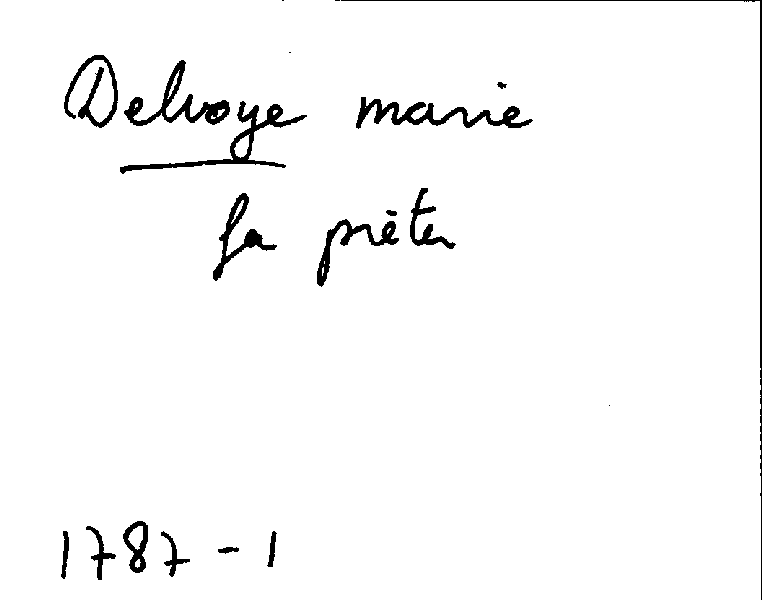 Delvoye marie
fa prêter
1787 - 1